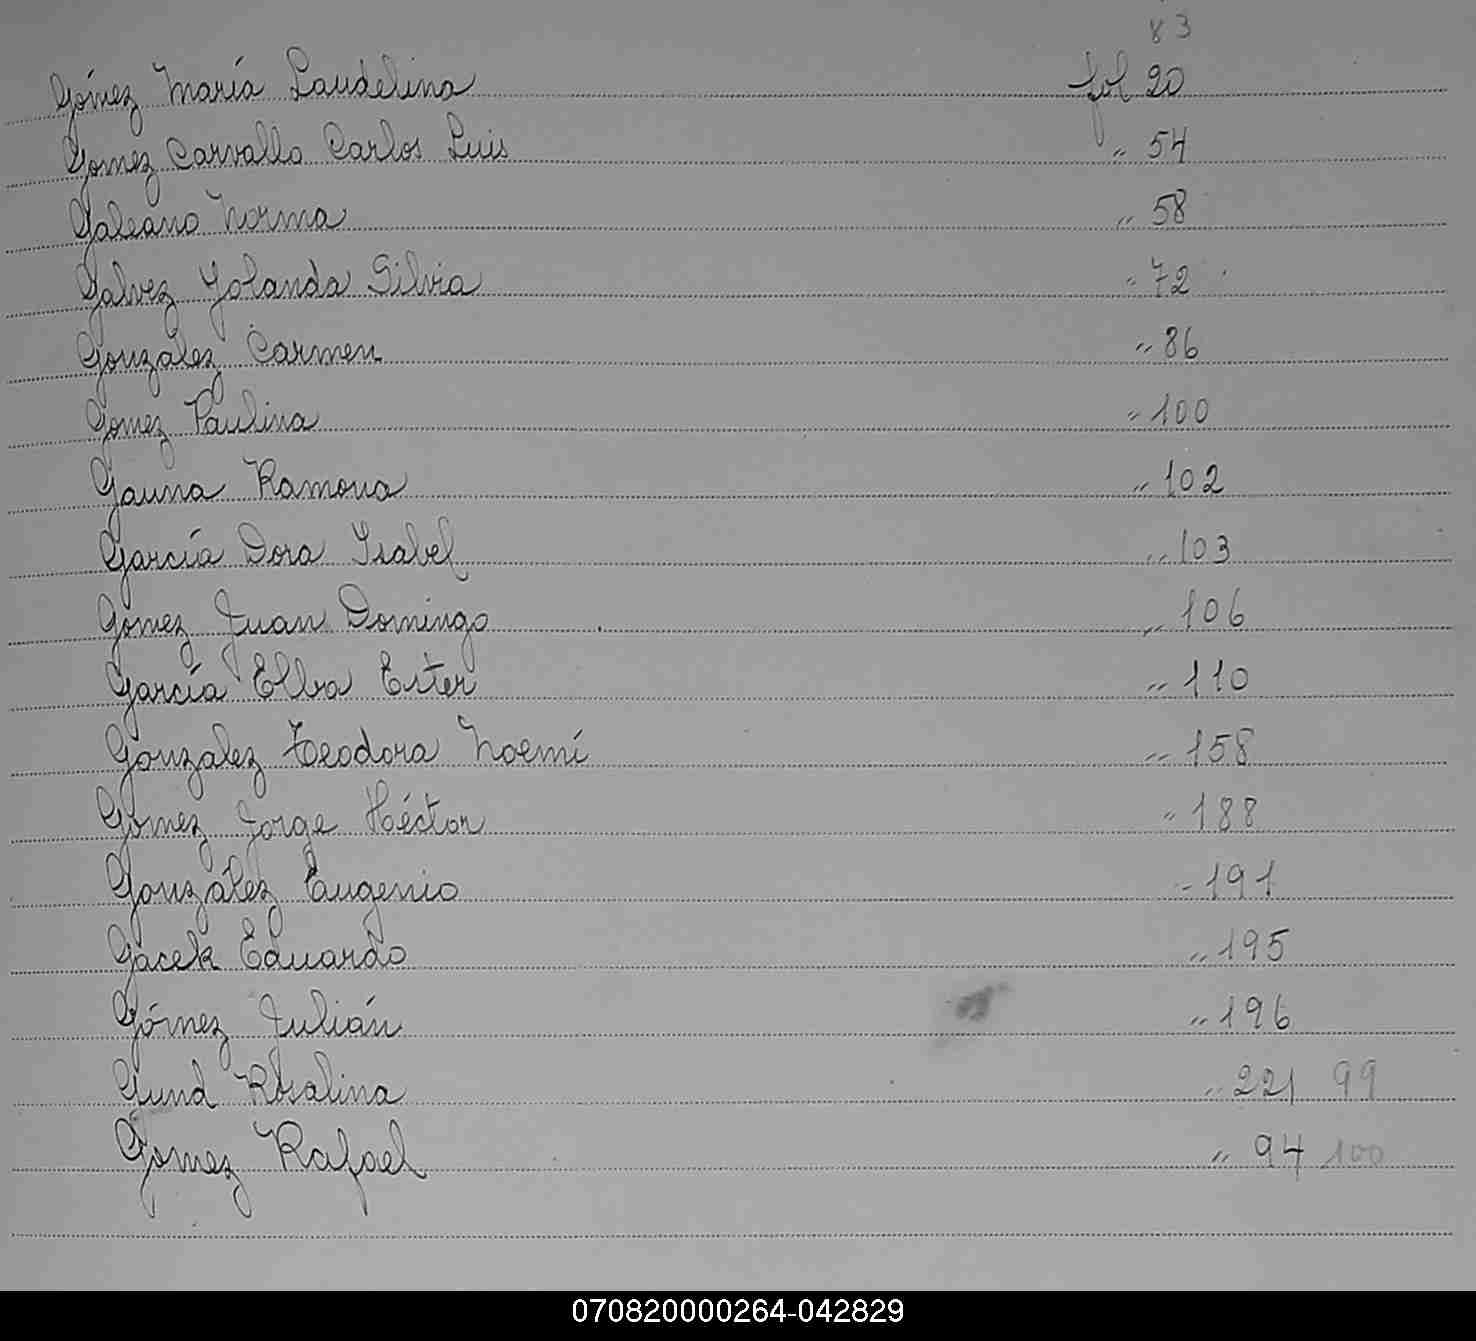 83
Gómez María Laudelina fol 20
Gomez Carvallo Carlos Luis " 54
Galeano Norma " 58
Galvez Yolanda Silvia " 72
González Carmen " 86
Gomez Paulina " 100
Gauna Ramona " 102
García Dora Isabel " 103
Gomez Juan Domingo " 106
García Elba Ester " 110
Gonzalez Teodora Noemí " 158
Gomez Jorge Héctor " 188
González Eugenio " 191
Gacek Eduardo " 195
Gómez Julián " 196
Gund Rosalina " 221 99
Gomez Rafael " 94 100
070820000264-042829